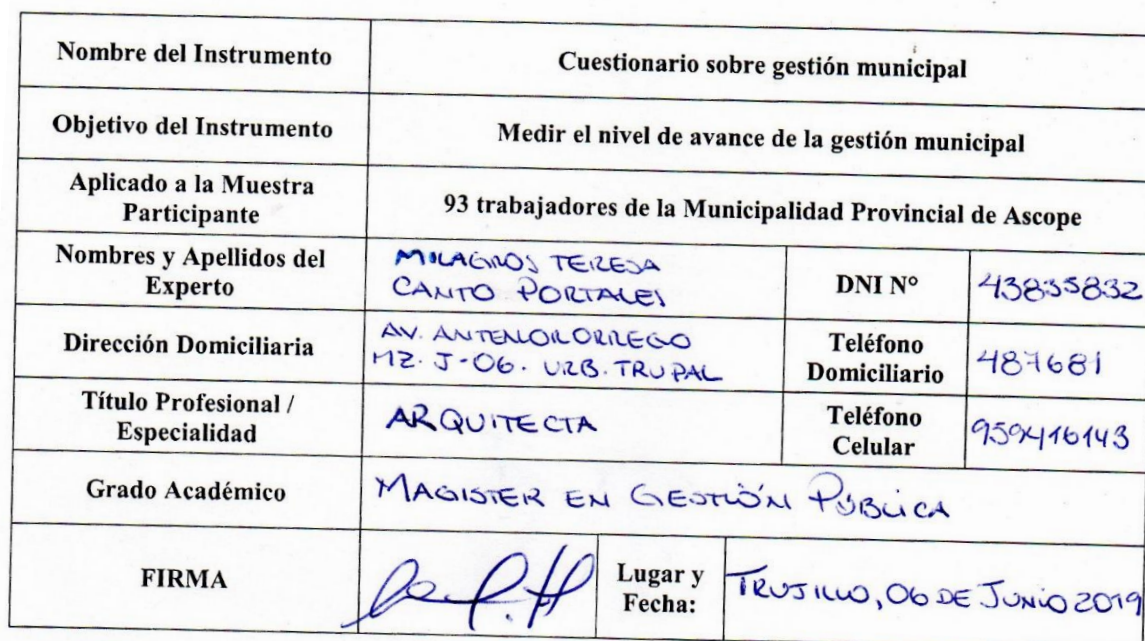 Nombre del Instrumento
Cuestionario sobre gestión municipal
Objetivo del Instrumento
Medir el nivel de avance de la gestión municipal
Aplicado a la Muestra
Participante
93 trabajadores de la Municipalidad Provincial de Ascope
Nombres y Apellidos del
Experto
MILAGROS TERESA
CANTO PORTALES
DNI N°
43835832
Dirección Domiciliaria
AV. ANTENOR ORREGO
MZ. J-06. URB. TRUPAL
Teléfono
Domiciliario
487681
Título Profesional /
Especialidad
ARQUITECTA
Teléfono
Celular
959416143
Grado Académico
MAGISTER EN GESTIÓN PÚBLICA
FIRMA
Lugar y
Fecha:
TRUJILLO, 06 DE JUNIO 2019